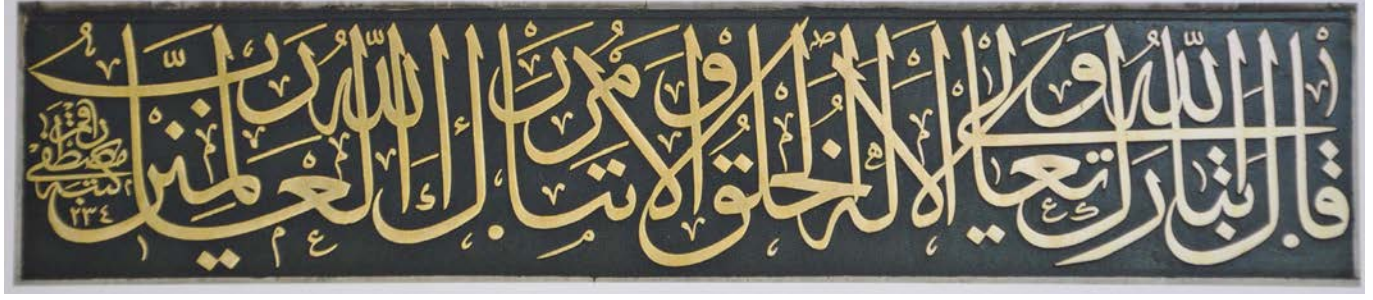 قال الله تبارك وتعالى ألا له الخلق والأمر تبارك الله رب العالمين
كتبه مصطفى راقم